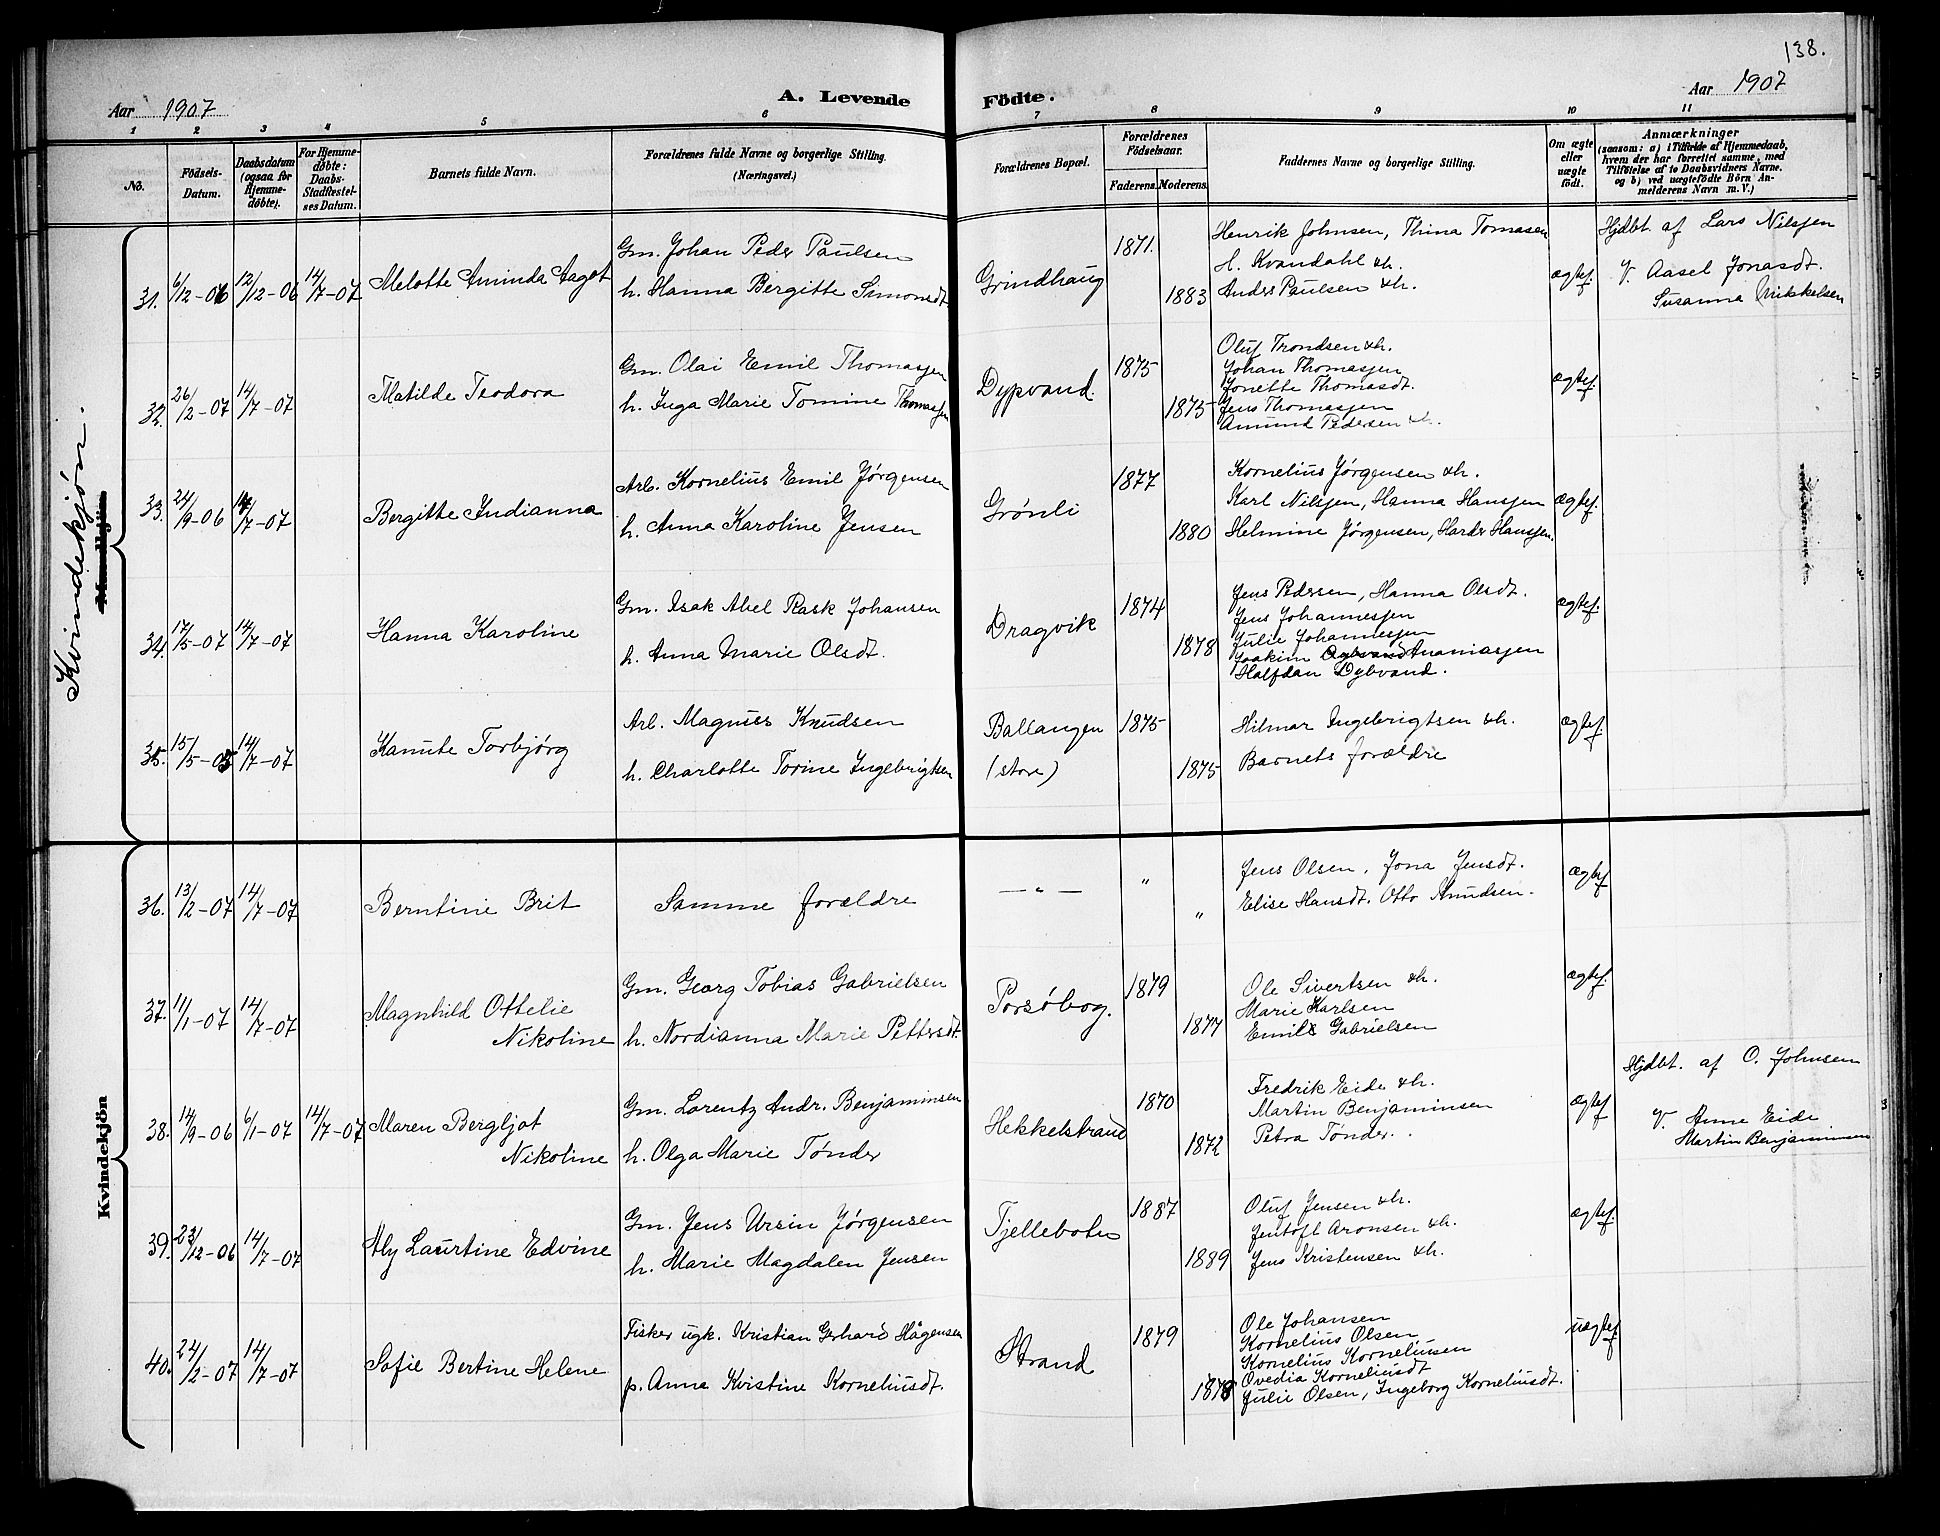 138.
Aar 1907
A. Levende Födte.
Aar 1907
1 2 3 4 5 6 7 8 9 10 11
No.
Födsels-Datum.
Daabsdatum (ogsaa for Hjemme-döbte).
For Hjemme-döbte: Daabs-Stadfæstel-ses Datum.
Barnets fulde Navn.
Forældrenes fulde Navne og borgerlige Stilling. (Næringsvei.)
Forældrenes Bopæl.
Forældrenes Födselsaar.
Faderens. Moderens.
Faddernes Navne og borgerlige Stilling.
Om ægte eller uægte födt.
Anmærkninger
(saasom: a) i Tilfælde af Hjemmedaab, hvem der har forrettet samme, med Tilföielse af to Daabsvidners Navne, og b) ved uægtefödte Börn Anmelderens Navn m. V.)
Kvindekjøn.
Mandkjön
31. 6/12-06 12/12-06 14/7-07 Melotte Aminda Aagot
Gm. Johan Peder Paulsen
h. Hanna Bergitte Simonsdt
Grindhaug 1871. 1883
Henrik Johnsen, Thina Tomasen
H. Kvandahl & h.
Anders Paulsen & h.
ægtef.
Hjdbt. af Lars Nilsjen
V. Aasel Jonasdt.
Susanna Mikkelsen
32. 26/2-07 14/7-07 Matilde Teodora
Gm. Olai Emil Thomasjen
h. Inga Marie Tomine Thomasjen
Dypvand. 1875 1875
Oluf Trondsen & h.
Johan Thomasjen
Jonette Thomasdt.
Jens Thomasjen
Amund Pedersen & h.
ægtef.
33. 24/9-06 14/7-07 Bergitte Indianna
Arb. Kornelius Emil Jørgensen
h. Anna Karoline Jensen
Grønli 1877 1880
Kornelius Jørgensen & h.
Karl Nilsjen, Hanna Hansjen
Helmine Jørgensen, Harder Hansjen.
ægtef.
34. 17/5-07 14/7-07 Hanna Karoline
Gm. Isak Abel Rask Johansen
h. Anna Marie Olsdt.
Dragvik 1874 1878
Jens Pedersen, Hanna Olsdt.
Jens Johannesjen
Julie Johannesjen
Joakim Ananiasjen
Halfdan Dybvand.
ægtef.
35. 15/5-05 14/7-07 Kanute Torbjørg
Arb. Magnus Knudsen
h. Charlotte Torine Ingebrigtsen
Ballangen (store) 1875 1875
Hilmar Ingebrigtsen & h.
Barnets forældre
ægtef.
Kvindekjön
36. 13/2-07 14/7-07 Berntine Brit
Samme forældre
— " — " "
Jens Olsen, Jona Jensdt.
Elise Hansdt. Otto Knudsen.
ægtef
37. 11/1-07 14/7-07 Magnhild Ottelie Nikoline
Gm. Georg Tobias Gabrielsen
h. Nordianna Marie Pettersdt.
Porsøbog. 1879 1877
Ole Sivertsen & h.
Marie Karlsen
Emil Gabrielsen
ægtef.
38. 14/9-06 6/1-07 14/7-07 Maren Bergljot Nikoline
Gm. Lorentz Andr. Benjaminsen
h. Olga Marie Tønder
Hekkelstrand 1870 1872
Fredrik Eide & h.
Martin Benjaminsen
Petra Tønder.
ægtef
Hjdbt. af O. Johnsen
V. Anne Eide
Martin Benjaminsen
39. 23/12-06 14/7-07 Aly Laurtine Edvine
Gm. Jens Ursin Jørgensen
h. Marie Magdalen Jensen
Tjelleboten 1887 1889
Oluf Jensen & h.
Jentoft Aronsen & h.
Jens Kristensen & h.
ægtef.
40. 24/2-07 14/7-07 Sofie Bertine Helene
Fisker ugk. Kristian Gerhard Hågensen
p. Anna Kristine Korneliusdt.
Strand 1879 1878
Ole Johansen
Kornelius Olsen
Kornelius Korneliusen
Ovedia Korneliusdt
Julie Olsen, Ingeborg Korneliusdt.
uægtef.